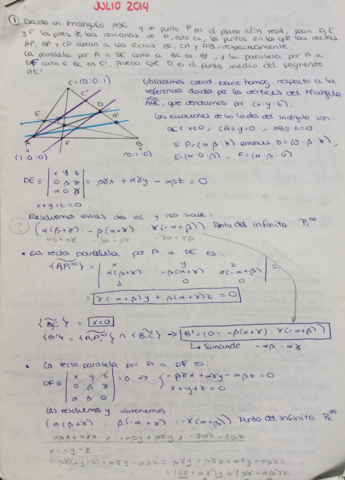 JULIO 2014
① Dado un triángulo ABC y un punto P en el plano afín real, sean D, E
y F los pies de las cevianas de P, esto es, los puntos en los que las rectas
AP, BP y CP cortan a las rectas BC, CA y AB, respectivamente.
La paralela por A a DE corta a BC en B', y la paralela por A a
DF corta a BC en C'. Probar que D es el punto medio del segmento
B'C'.
C (0:0:1)
A (1:0:0)
B (0:1:0)
Utilizamos coord. baric. homog. respecto a la
referencia dada por los vértices del triángulo
ABC, que denotamos por (x:y:z).
Las ecuaciones de los lados del triángulo son:
BC ≡ x=0, CA ≡ y=0, AB ≡ z=0
Si P=(α:β:γ) entonces D=(0:β:γ)
E=(α:0:γ), F=(α:β:0)
DE ≡ | x y z | 0 β γ | α 0 γ | = βγx + αγy - αβz = 0
x+y+z=0
Resolvemos estas dos ec y nos sale:
(α(β+γ) : -β(α+γ) : γ(-α+β)) Punto del infinito P₁^∞
• La recta paralela por A a DE es:
{AP₁^∞} ≡ | x y z | α(β+γ) -β(α+γ) γ(-α+β) | 1 0 0 | =
= γ(-α+β)y + β(α+γ)z = 0
{BC} ≡ x=0
{B'} = {AP₁^∞} ∩ {BC} ⇒ B' = (0 : -β(α+γ) : γ(-α+β))
↳ Sumando -αβ-αγ
• La recta paralela por A a DF es:
DF ≡ | x y z | 0 β γ | α β 0 | = 0 ⇒ { -βγx + αγy - αβz = 0
x+y+z=0
Las resolvemos y obtenemos
(α(β+γ) : β(-α+γ) : -γ(α+β)) Punto del infinito P₂^∞
x=-y-z